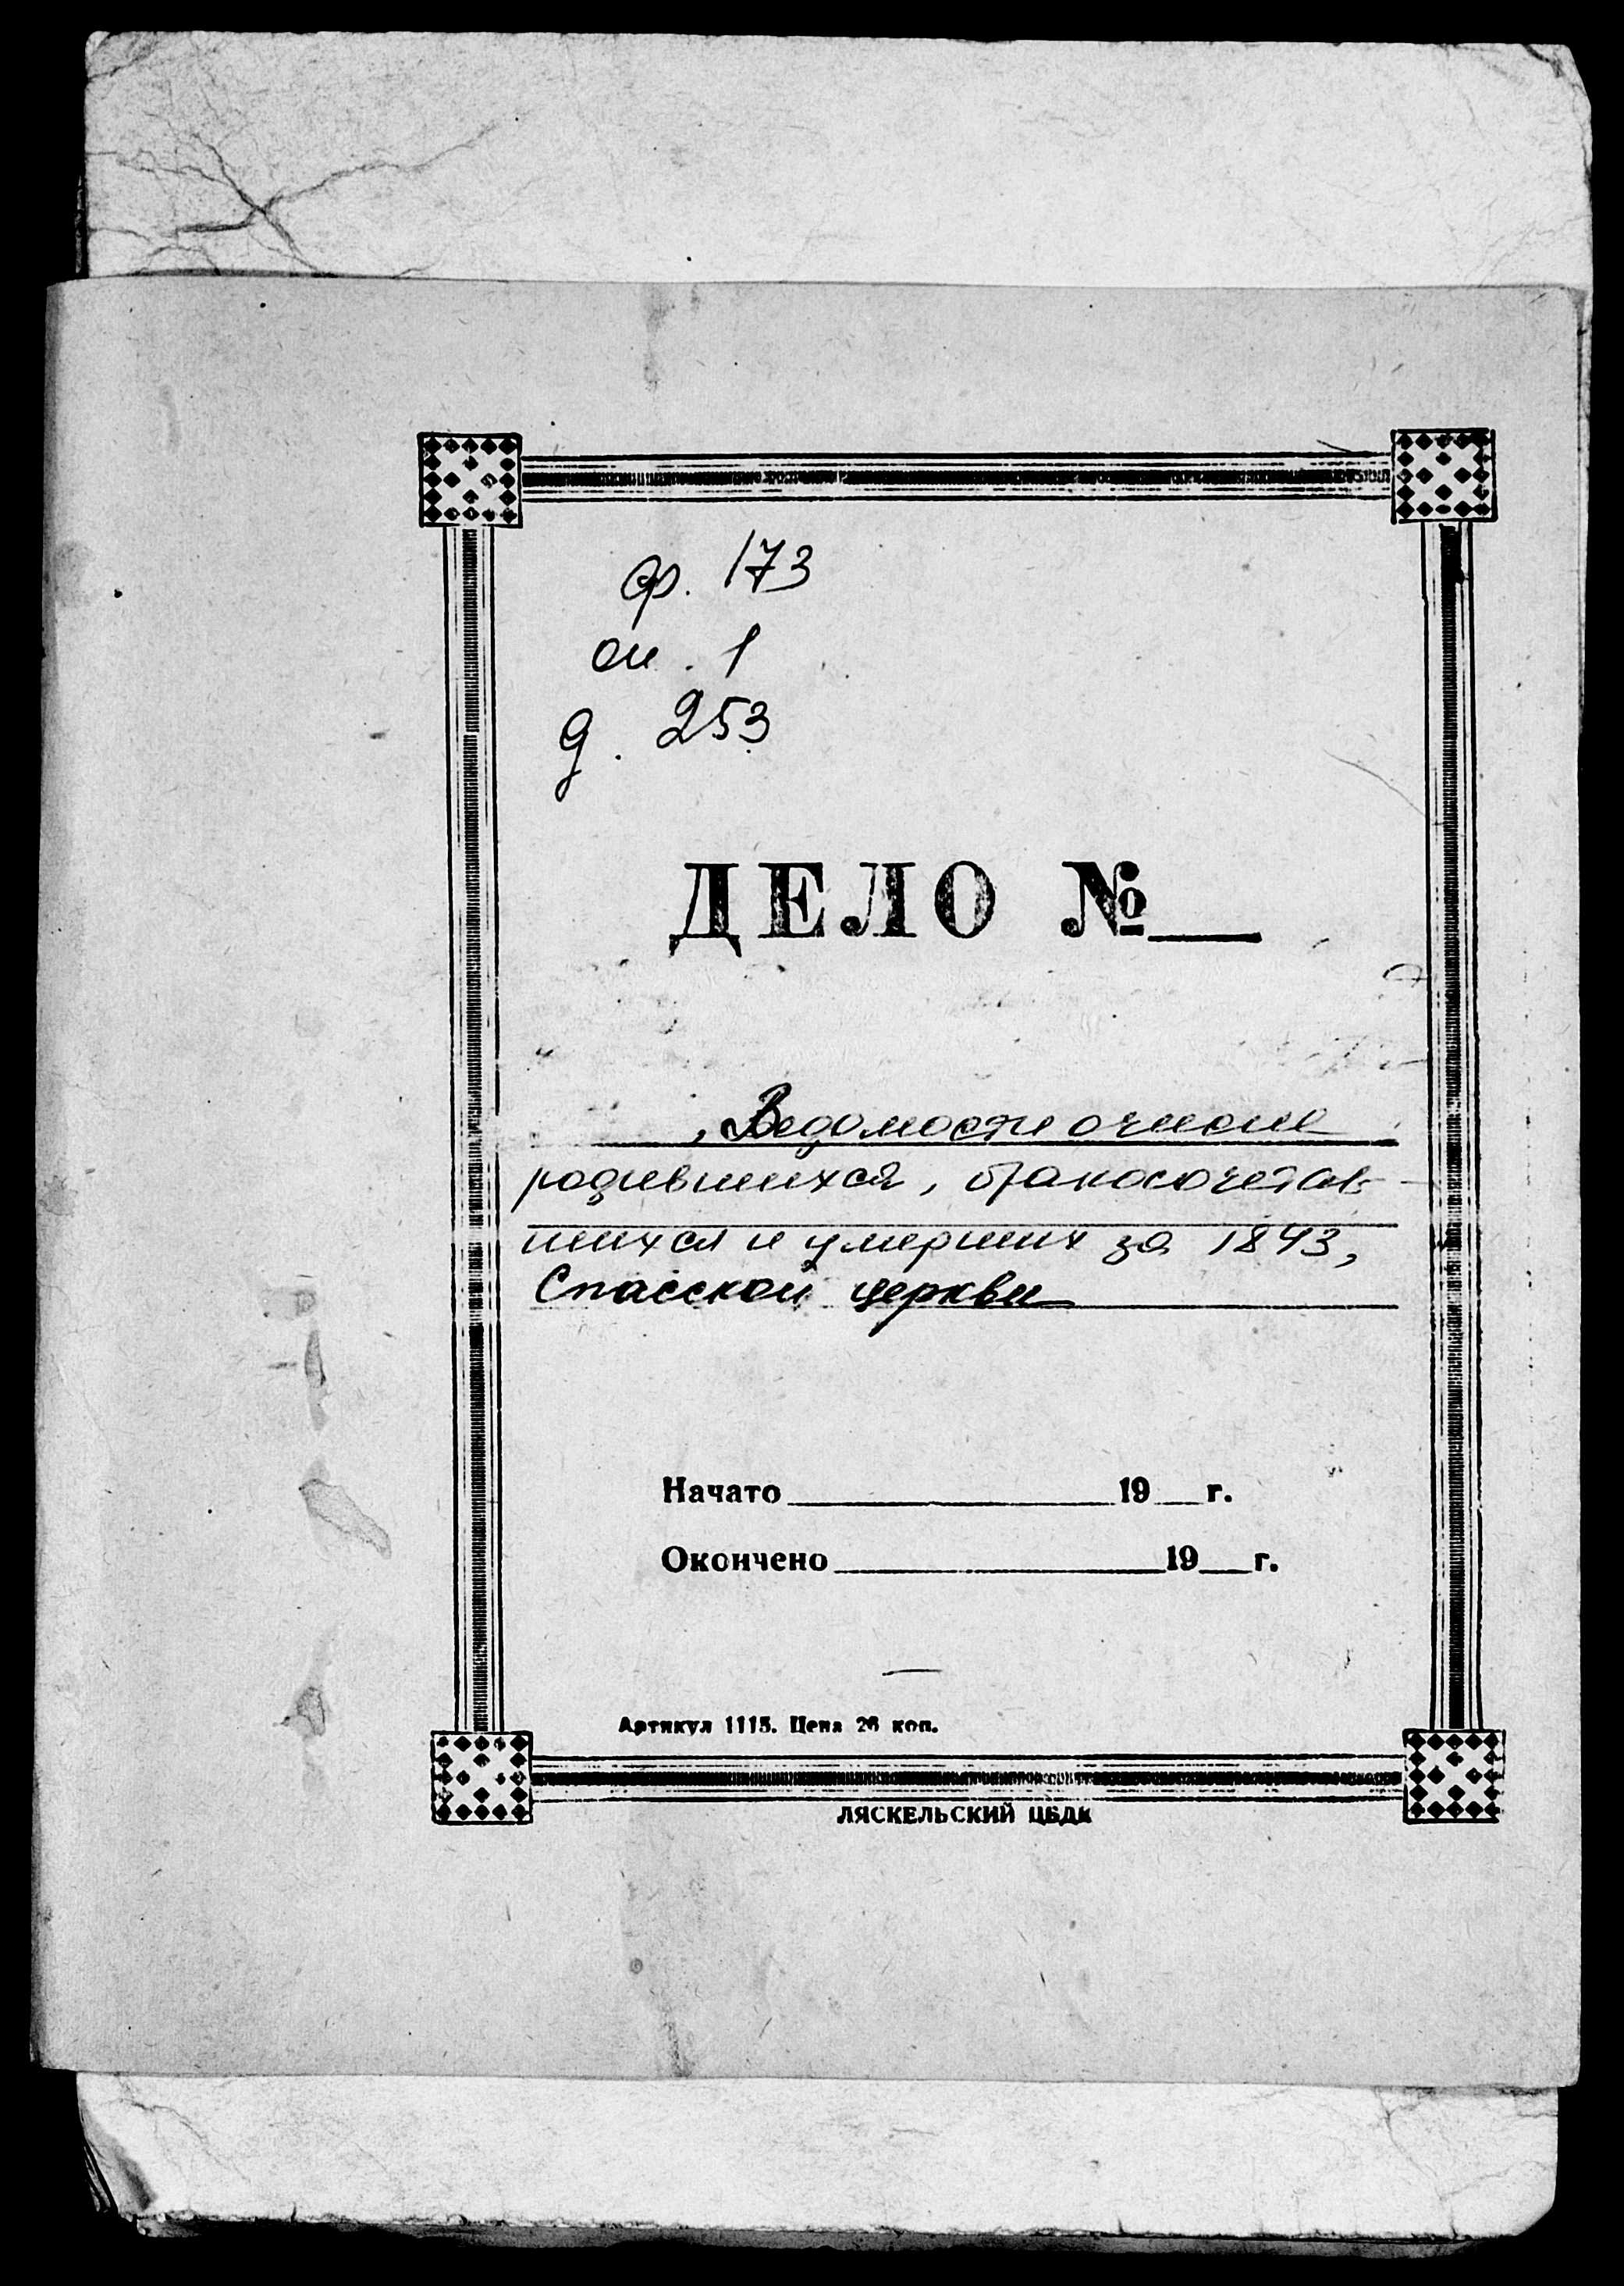 ф. 173
оп. 1
д. 253
ДЕЛО №
Ведомости о числе
родившихся, бракосочетав-
шихся и умерших за 1843,
Спасской церкви
Начато 19 г.
Окончено 19 г.
Артикул 1115. Цена 26 коп.
ЛЯСКЕЛЬСКИЙ ЦБДК